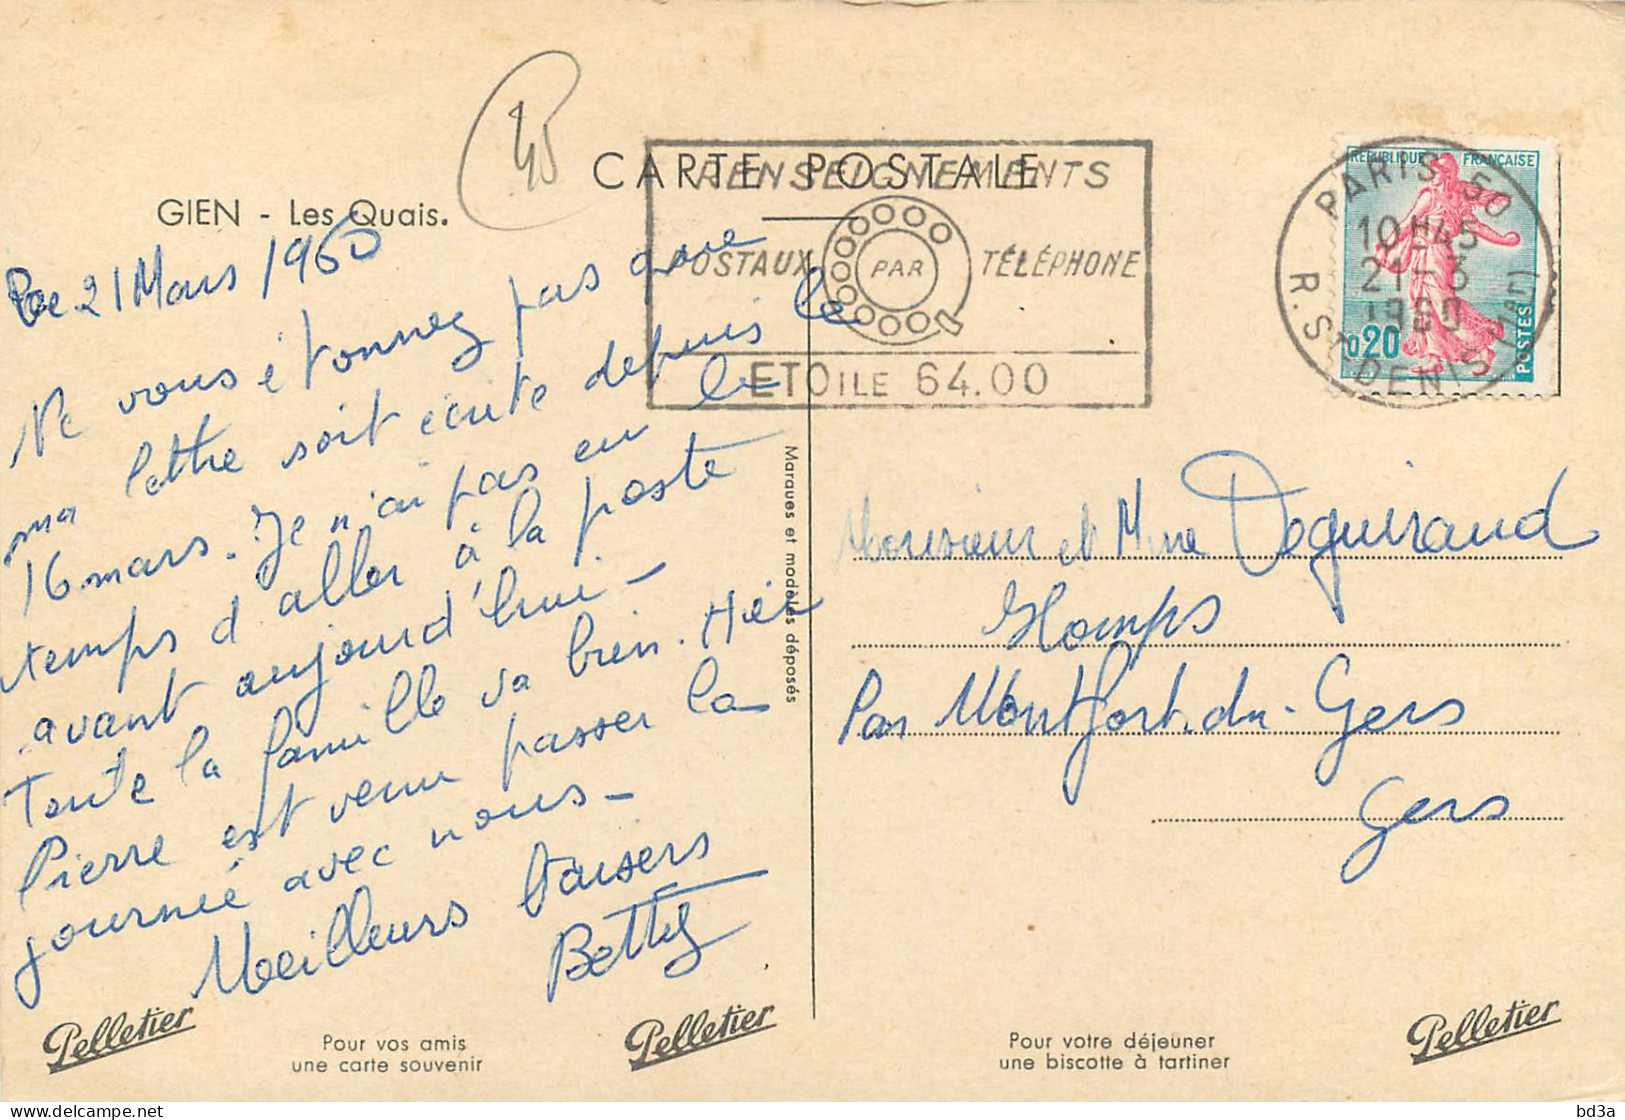 45
CARTE POSTALE
GIEN - Les Quais.
RENSEIGNEMENTS
POSTAUX PAR TÉLÉPHONE
ETOILE 64.00
PARIS 50
10H45
21-3
1960
R. ST DENIS (1er)
REPUBLIQUE FRANÇAISE
0,20
POSTES
Le 21 Mars 1960
Ne vous étonnez pas que
ma lettre soit écrite depuis le
16 mars. Je n'ai pas eu le
temps d'aller à la poste
avant aujourd'hui -
Toute la famille va bien. Hier
Pierre est venu passer la
journée avec nous -
Meilleurs baisers
Betty
Marques et modèles déposés
Monsieur et Mme Deguiraud
Homps
Par Montfort-du-Gers
Gers
Pelletier
Pour vos amis
une carte souvenir
Pelletier
Pour votre déjeuner
une biscotte à tartiner
Pelletier
bd3a